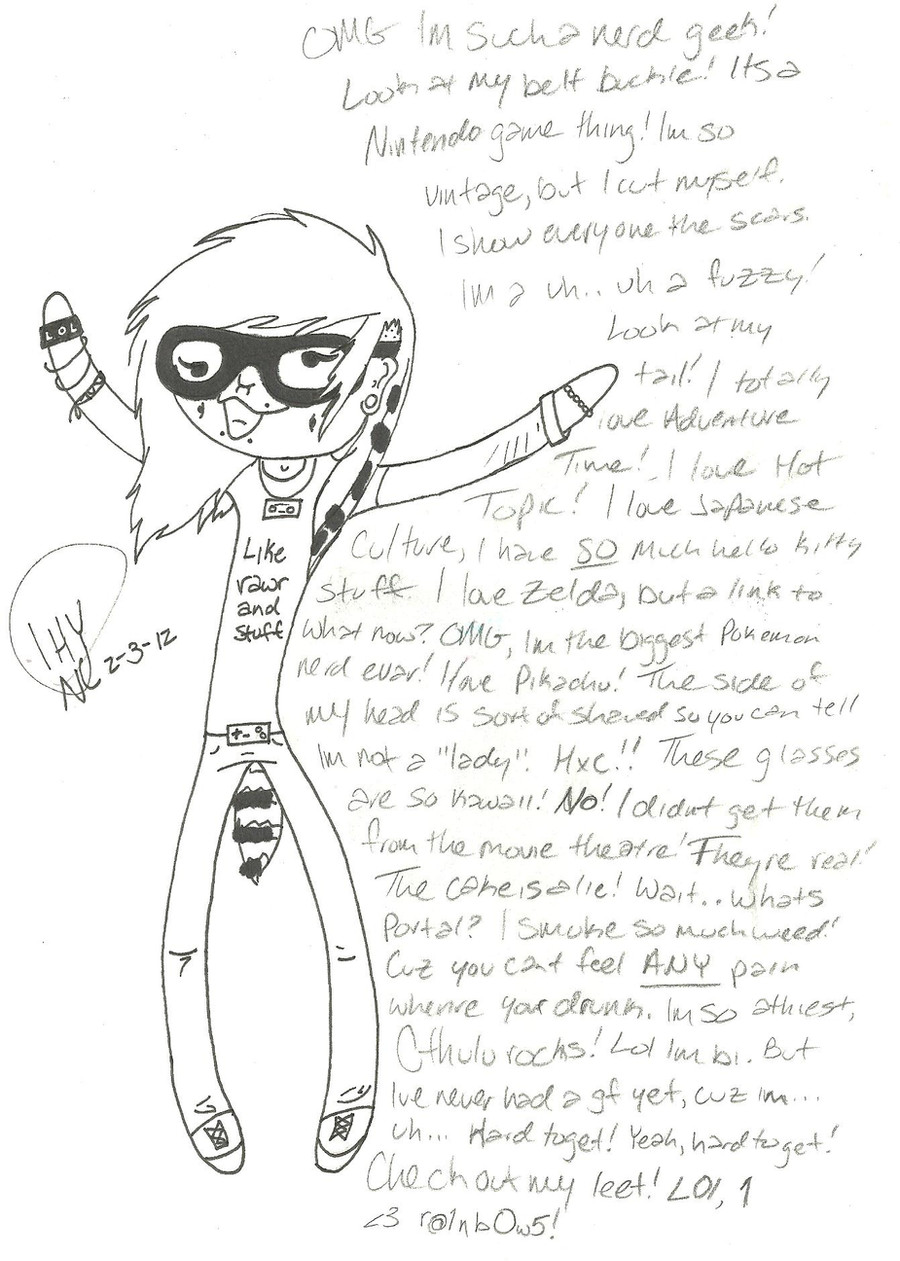 OMG Im such a nerd geek!
Look at my belt buckle! Its a
Nintendo game thing! Im so
vintage, but I cut myself.
I show everyone the scars.
Im a uh.. uh a fuzzy!
Look at my
tail! I totally
love Adventure
Time! I love Hot
Topic! I love Japanese
Culture, I have SO much hello kitty
stuff. I love Zelda, but a link to
what now? OMG, Im the biggest Pokemon
nerd evar! I love Pikachu! The side of
my head is sort of shaved so you can tell
Im not a "lady". Hxc!! These glasses
are so kawaii! No! I didnt get them
from the movie theatre! Theyre real!
The cake is a lie! Wait.. whats
Portal? I smoke so much weed!
Cuz you cant feel ANY pain
whenre your drunk. Im so athiest,
Cthulu rocks! Lol Im bi. But
Ive never had a gf yet, cuz im...
uh... Hard to get! Yeah, hard to get!
Check out my leet! LOl, 1
<3 r@1nb0w5!
LOL
Like
rawr
and
stuff
IHY
NC 2-3-12